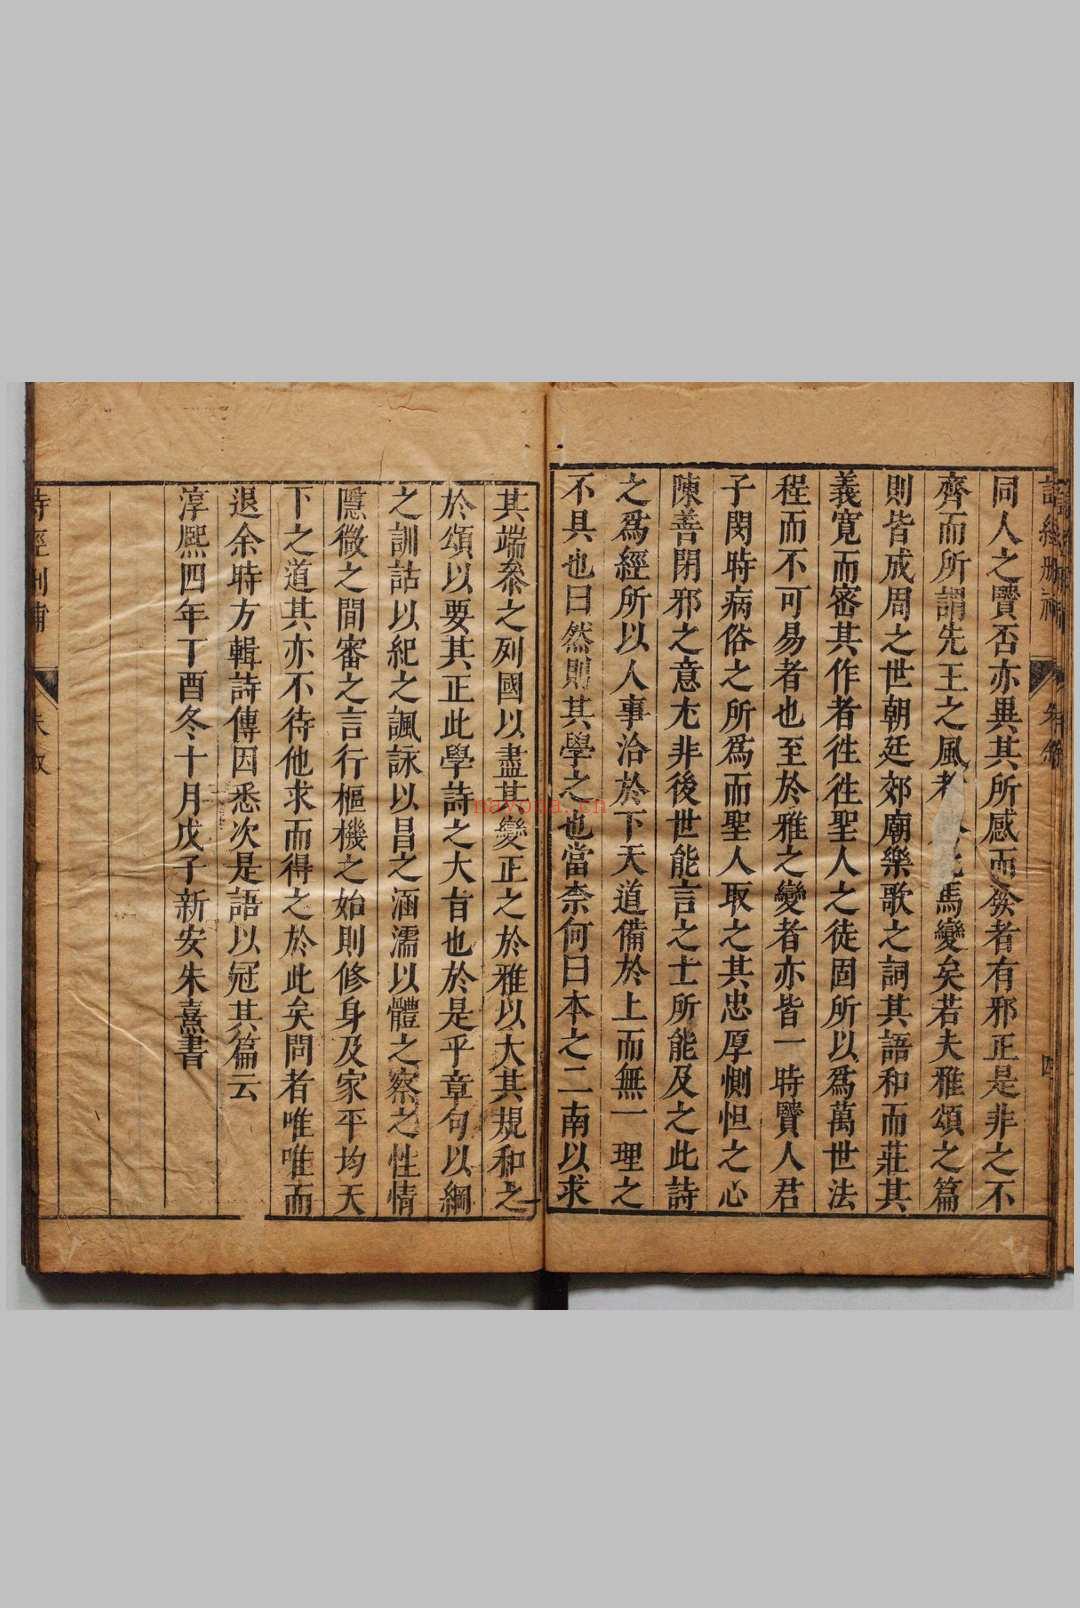 同人之賢否亦異其所感而發者有邪正是非之不
齊而所謂先王之風者 馬變矣若夫雅頌之篇
則皆成周之世朝廷郊廟樂歌之詞其語和而莊其
義寬而密其作者徃徃聖人之徒固所以爲萬世法
程而不可易者也至於雅之變者亦皆一時賢人君
子閔時病俗之所爲而聖人取之其忠厚惻怛之心
陳善閉邪之意尤非後世能言之士所能及之此詩
之爲經所以人事浴於下天道備於上而無一理之
不具也曰然則其學之也當奈何曰本之二南以求
其端叅之列國以盡其變正之於雅以大其規和之
於頌以要其正此學詩之大旨也於是乎章句以綱
之訓詁以紀之諷詠以昌之涵濡以體之察之性情
隱微之間審之言行樞機之始則修身及家平均天
下之道其亦不待他求而得之於此矣問者唯唯而
退余時方輯詩傳因悉次是語以冠其篇云
淳熙四年丁酉冬十月戊子新安朱熹書
nayona.cn